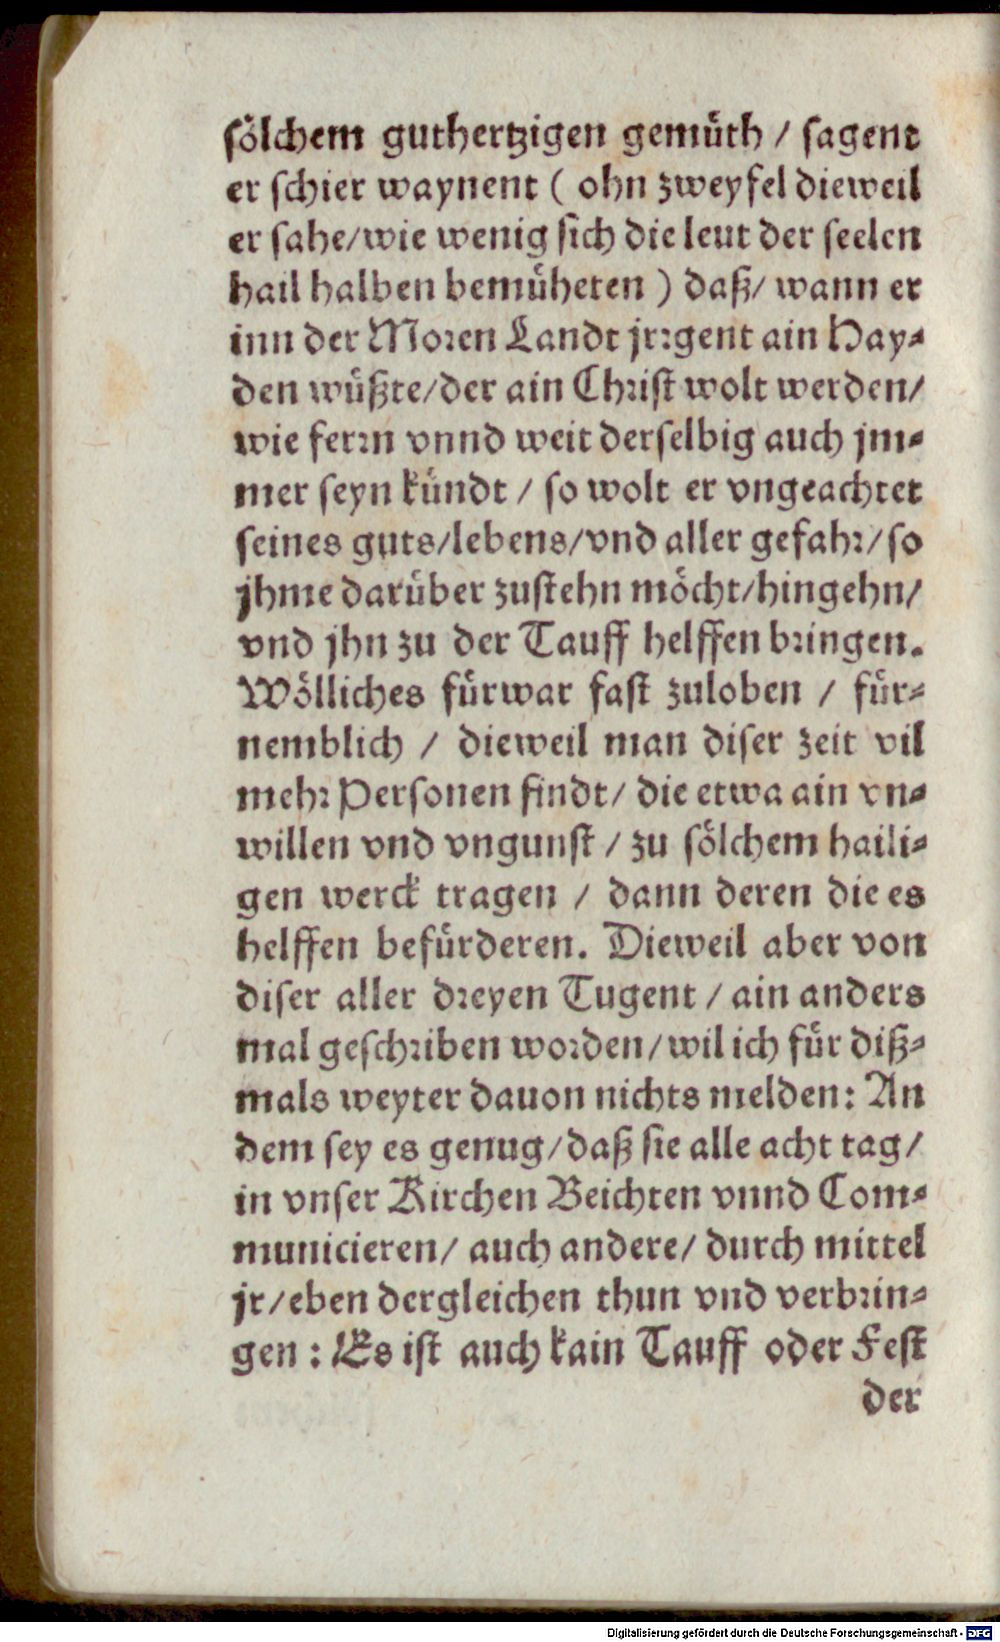 sölchem guthertzigen gemüth / sagent
er schier waynent ( ohn zweyfel dieweil
er sahe/wie wenig sich die leut der seelen
hail halben bemüheten ) daß/ wann er
inn der Moren Landt jrrgent ain Hay-
den wüßte/der ain Christ wolt werden/
wie ferrn vnnd weit derselbig auch jm-
mer seyn kündt / so wolt er vngeachtet
seines guts/lebens/vnd aller gefahr/so
jhme darüber zustehn möcht/hingehn/
vnd jhn zu der Tauff helffen bringen.
Wölliches fürwar fast zuloben / für-
nemblich / dieweil man diser zeit vil
mehr Personen findt/ die etwa ain vn-
willen vnd vngunst / zu sölchem haili-
gen werck tragen / dann deren die es
helffen befürderen. Dieweil aber von
diser aller dreyen Tugent / ain anders
mal geschriben worden/wil ich für diß-
mals weyter dauon nichts melden: An
dem sey es genug/daß sie alle acht tag/
in vnser Kirchen Beichten vnnd Com-
municieren/ auch andere/ durch mittel
jr/eben dergleichen thun vnd verbrin-
gen : Es ist auch kain Tauff oder Fest
der
Digitalisierung gefördert durch die Deutsche Forschungsgemeinschaft - DFG